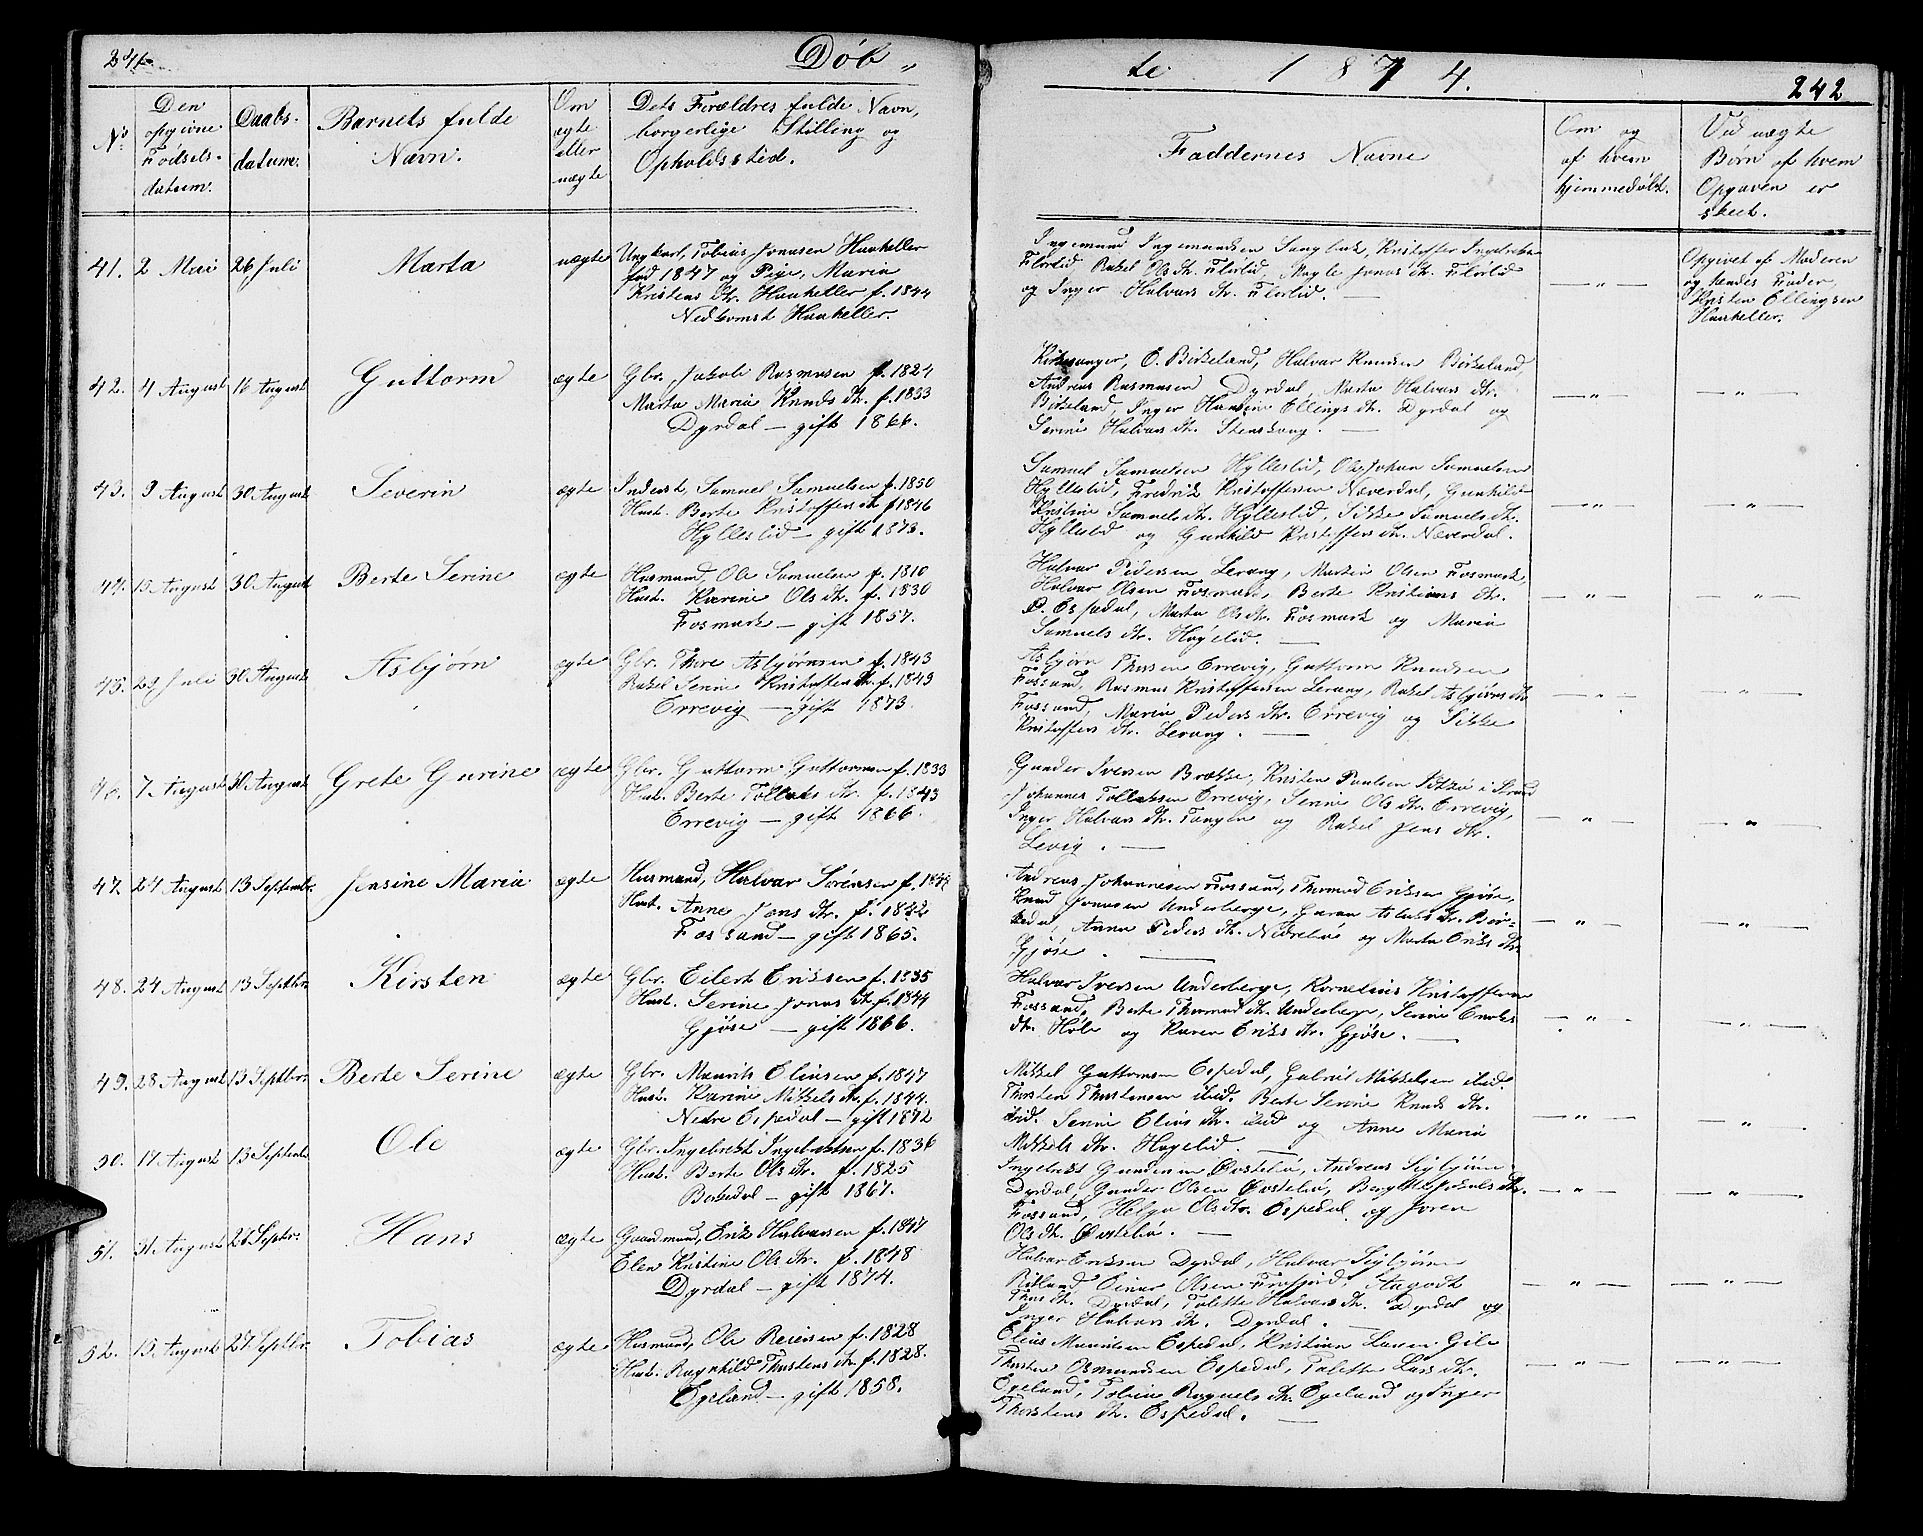 241.
Døb „
te 1874.
242
No
Den opgivne Fødsels- datum.
Daabs- datum.
Barnets fulde Navn.
Om ægte eller uægte
Dets Forældres fulde Navn, borgerlige Stilling og Opholdssted.
Faddernes Navne
Om og af hvem hjemmedøbt.
Ved uægte Børn af hvem Opgaven er skeet.
41. 2 Mai 26 Juli Marta uægte Ungkarl, Tobias Jonasen Haukeller
fød 1847 og Pige, Maria
Kristens dtr. Haukeller f. 1844
Nedkomst Haukeller.
Ingemund Ingemundsen
Flørlid Rakel Ols dtr. Flørlid, Jonas dtr. Flørlid
og Inger Halvars dtr. Flørlid. —
— „ —
Opgivet af Moderen
og hendes Fader,
Kristen Ellingsen
Haukeller.
42. 4 August 16 August Guttorm ægte Gbr. Jakob Rasmusen f. 1824
Marta Maria Knuds dtr. f. 1833
Dyrdal — gift 1866.
Kirkesanger, E. Birkeland, Halvar Knudsen Birkeland,
Andreas Rasmusen Dyrdal, Marta Halvars dtr.
Birkeland, Inger Ellings dtr. Dyrdal og
Serine Halvars dtr. Stenskoug. —
— „ — — „ —
43. 9 August 30 August Severin ægte Inderst, Samuel Samuelsen f. 1850
Hust. Berte Kristoffers dtr. f 1846
Hylleslid — gift 1873.
Samuel Samuelsen Hylleslid, Ole Johan Samuelsen
Hylleslid, Fredrik Kristoffersen Næverdal, Gunhild
Kristine Samuels dtr. Hylleslid, Sikke Samuels dtr.
Hylleslid og Gunhild Kristoffers dtr. Næverdal.
— „ — — „ —
44. 15 August 30 August Berte Serine ægte Husmand, Ole Samuelsen f. 1810
Hust. Karine Ols dtr. f. 1830
Fosmark — gift 1857.
Halvar Pedersen Lerang, Martin Olsen Fosmark,
Halvar Olsen Fosmark, Berte Kristians dtr.
Ø. Espedal, Marta Ols dtr. Fosmark og Maria
Samuels dtr. Høgelid. —
— „ — — „ —
45. 29 Juli 30 August Asbjørn ægte Gbr. Thore Asbjørnsen f. 1843
Rakel Serine Kristoffers dtr. f. 1849
Errevig — gift 1873.
Asbjørn Thorsen Errevig, Guttorm Knudsen
Fossand, Rasmus Kristoffersen Lerang, Rakel Asbjørns dtr
Fossand, Maria Peders dtr. Errevig og Sikke
Kristoffers dtr. Lerang. —
— „ — — „ —
46. 7 August 30 August Grete Gurine ægte Gbr. Guttorm Guttormsen f. 1833
Hust. Berte Tollaks dtr. f. 1843
Errevig — gift 1866.
Gunder Iversen Brække, Kristen Paulsen i Strand
Johannes Tollaksen Errevig, Serine Ols dtr. Errevig,
Inger Halvars dtr. Tangen og Rakel Jens dtr.
Levig. —
— „ — — „ —
47. 24 August 13 Septembr. Jensine Maria ægte Husmand, Halvar Sørensen
Hust. Anne Jens dtr. f. 1842
Fossand — gift 1865.
Andreas Johannesen Fossand, Thormod Eriksen Gjøse,
Knud Jonasen Underberge, Guran Aslaks dtr.
Anna Peders dtr. Nedrebø og Marta Eriks dtr
Gjøse. —
— „ — — „ —
48. 24 August 13 Septbr. Kirsten ægte Gbr. Eilert Eriksen f. 1835
Hust. Serine Jonas dtr. f. 1844
Gjøse — gift 1866.
Halvar Iversen Underberge, Kornelius Kristoffersen
Fossand, Berte Thormod dtr. Underberge, Serine Enoks
dtr. Høle og Karen Eriks dtr. Gjøse. —
— „ — — „ —
49. 28 August 13 Septbr. Berte Serine ægte Gbr. Maurits Eliasen f. 1847
Hust. Karine Mikkels dtr. f. 1844.
Nedre Espedal — gift 1872
Mikkel Guttormsen Espedal, Gabriel Mikkelsen ibid.
Thorsten Thorstensen ibid. Berte Serine Knuds dtr.
ibid. Serine Elias dtr. ibid og Anne Maria
Mikkels dtr. Høgelid. —
— „ — — „ —
50. 17 August 13 Septembr. Ole ægte Gbr. Ingebrekt Ingebrektsen f. 1836
Hust. Berte Ols dtr. f. 1825
Berkedal — gift 1867.
Ingebrekt Gundersen Øvstebø, Andreas Sigbjørns.
Dyrdal, Gunder Olsen Øvstebø, Jakobs dtr.
Fossand, Helga Ols dtr. Espedal og Joren
Ols dtr. Øvstebø. —
— „ — — „ —
51. 31. August 27 Septbr. Hans ægte Gaardmand, Erik Halvarsen f. 1847
Elen Kristine Ols dtr. f. 1848
Dyrdal — gift 1874.
Halvar Eriksen Dyrdal, Halvar Sigbjørnsen
Rikland, Einar Olsen Frafjord, Aagodt
Thors dtr. Dyrdal, Talette Halvars dtr. Dyrdal og
Inger Halvars dtr. Dyrdal. —
— „ — — „ —
52. 15 August 27 Septbr. Tobias ægte Husmand, Ole Reiersen f. 1828
Hust. Ragnhild Thorstens dtr. f. 1828.
Egeland — gift 1858.
Elias Mauritsen Espedal, Kristian Larsen Gilje
Thorsten Osmundsen Espedal, Talette Lars dtr.
Egeland, Tobine Raguels dtr. Egeland og Inger
Thorstens dtr. Espedal. —
— „ — — „ —